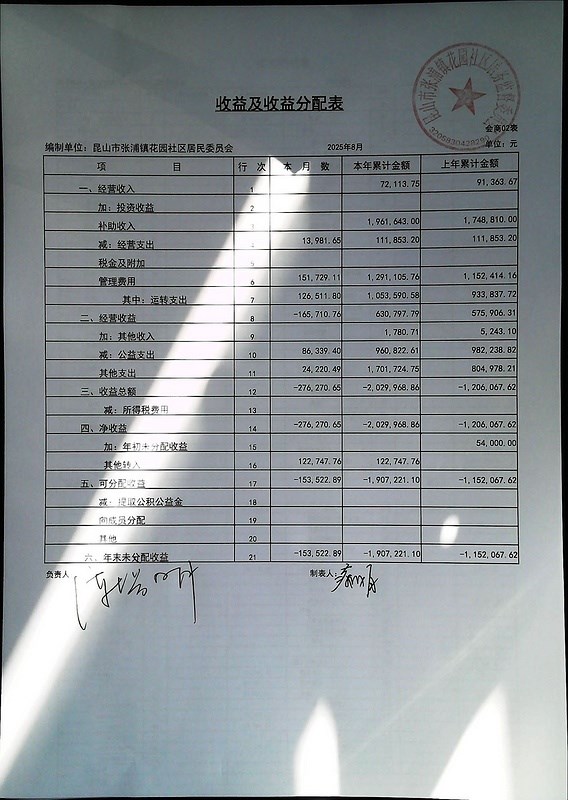 收益及收益分配表
会商02表
编制单位：昆山市张浦镇花园社区居民委员会 2025年8月 单位：元
项 目 行 次 本 月 数 本年累计金额 上年累计金额
一、经营收入 1 72,113.75 91,363.67
加：投资收益 2
补助收入 3 1,961,643.00 1,748,810.00
减：经营支出 4 13,981.65 111,853.20 111,853.20
税金及附加 5
管理费用 6 151,729.11 1,291,105.76 1,152,414.16
其中：运转支出 7 126,511.80 1,053,590.58 933,837.72
二、经营收益 8 -165,710.76 630,797.79 575,906.31
加：其他收入 9 1,780.71 5,243.10
减：公益支出 10 86,339.40 960,822.61 982,238.82
其他支出 11 24,220.49 1,701,724.75 804,978.21
三、收益总额 12 -276,270.65 -2,029,968.86 -1,206,067.62
减：所得税费用 13
四、净收益 14 -276,270.65 -2,029,968.86 -1,206,067.62
加：年初未分配收益 15 54,000.00
其他转入 16 122,747.76 122,747.76
五、可分配收益 17 -153,522.89 -1,907,221.10 -1,152,067.62
减：提取公积公益金 18
向成员分配 19
其他 20
六、年末未分配收益 21 -153,522.89 -1,907,221.10 -1,152,067.62
负责人 制表人：